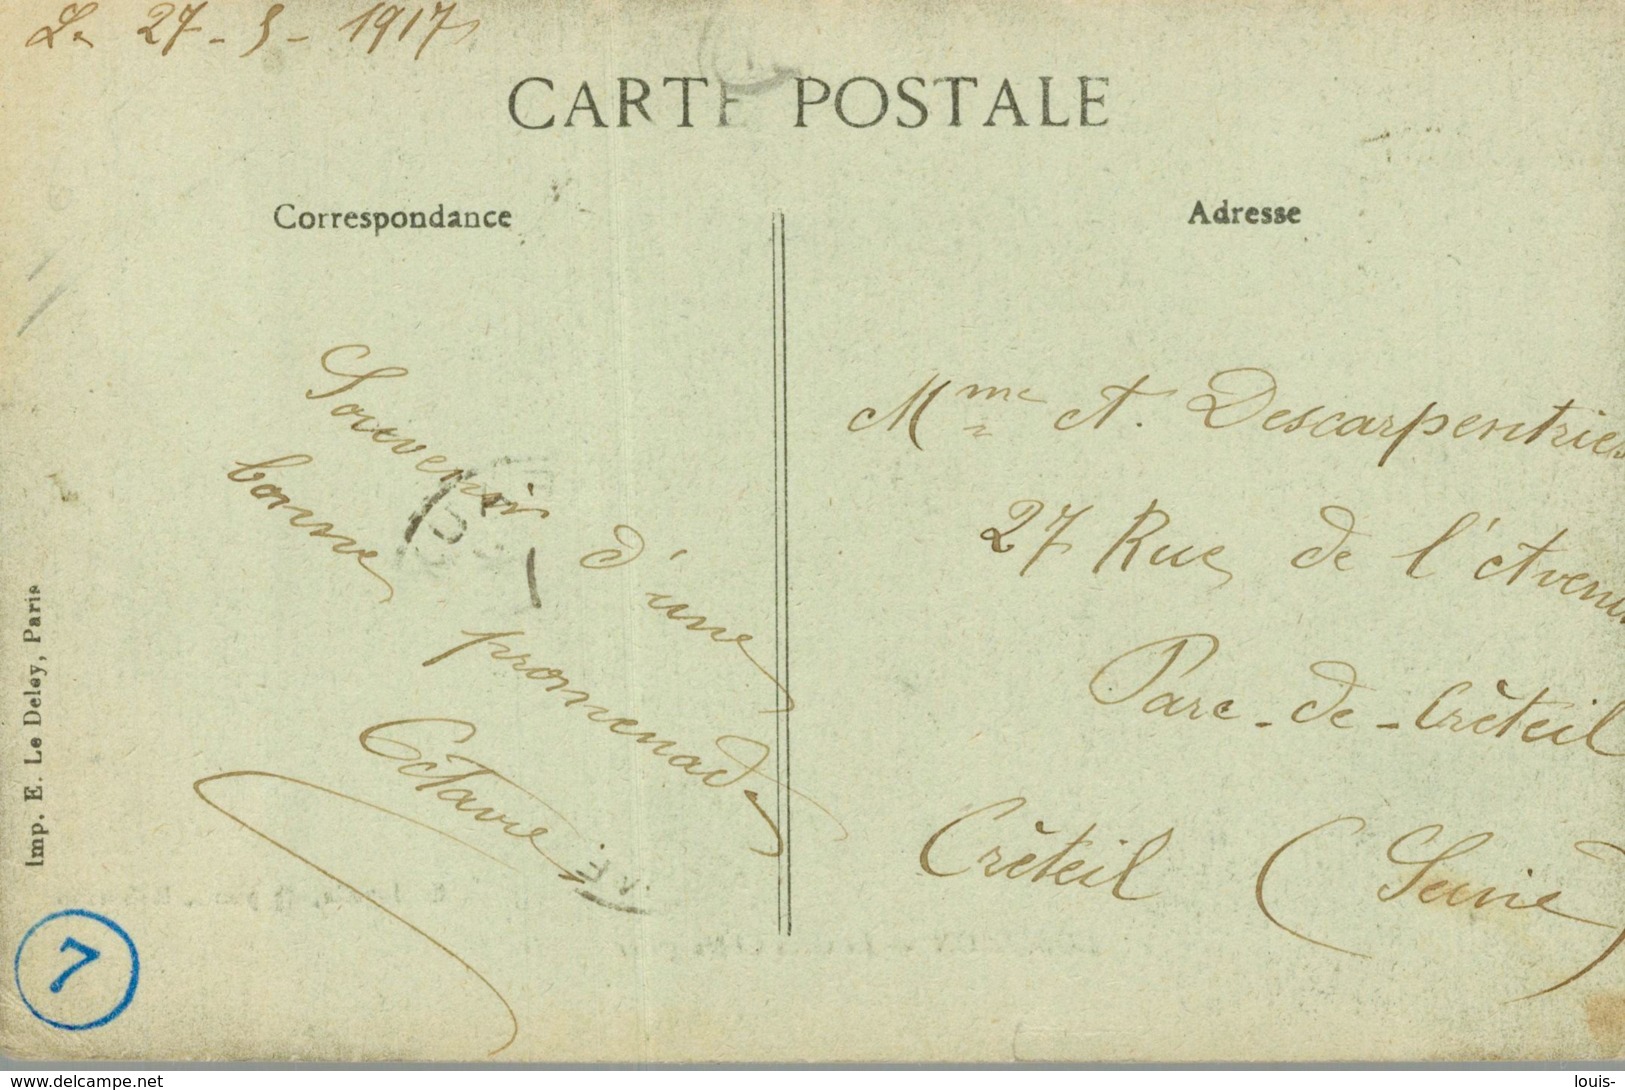 Le 27-5-1917
CARTE POSTALE
Correspondance
Adresse
Souvenir d'une
bonne promenade
Octavie
Mme A. Descarpentries
27 Rue de l'Avenue
Parc-de-Créteil
Créteil (Seine)
Imp. E. Le Deley, Paris
7
www.delcampe.net
louis-